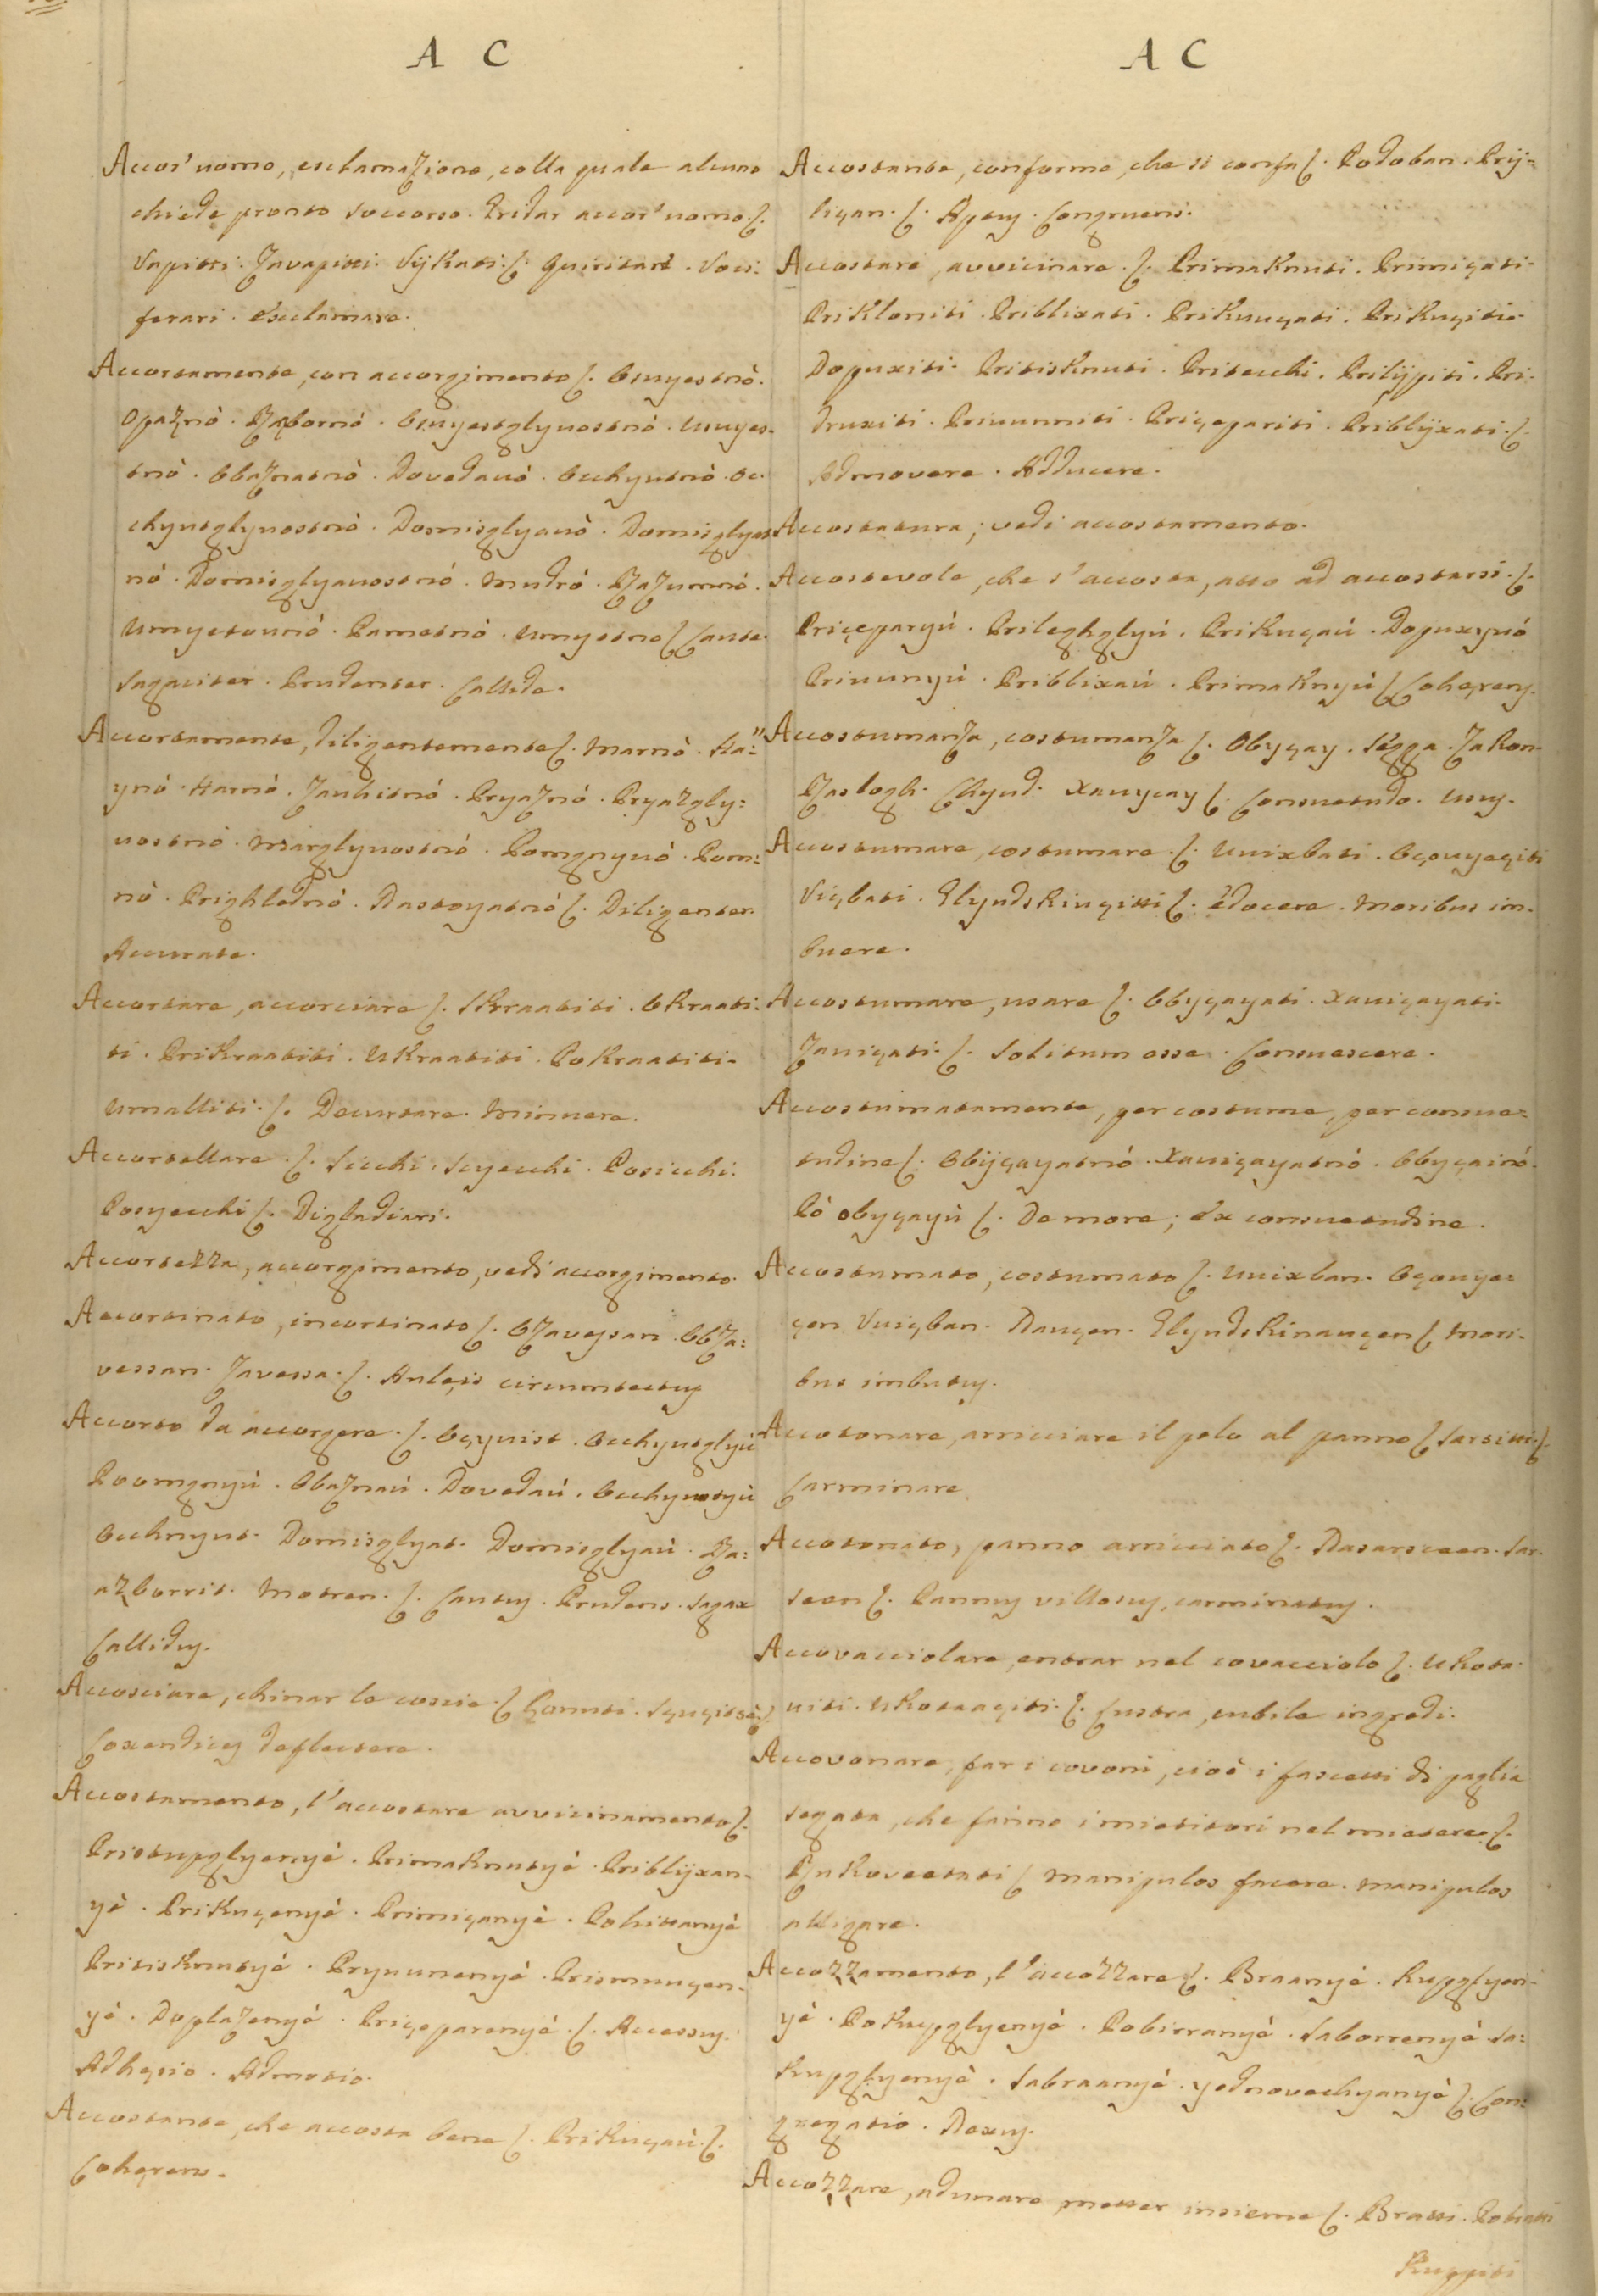 A C
Accor' uomo, esclamazione, colla quale alcuno
chiede pronto soccorso. Gridar accor' uomo. ʃ.
Vapitti. Zavapitti. Vijkati. ʃ. Quiritari. Voci:
ferari. Esclamare.
Accortamente, con accorgimento ʃ.
Opaznò. Razbornò.
tnò. Obaznatnò. Dovedauò. Occhyutnò. Oc:
chyutglyuostnò. Domisglyauò. Domisglyat:
nò. Domisglyauostnò. Mudrò. Razumnò.
Umyetounò. Pametnò. Umyetno ʃ. Caute.
Sagaciter. Prudenter. Callide.
Accortamente, diligentemente ʃ. Marnò. Ha:
ynò. Harnò. Zauhitnò. Pryaznò. Pryazgly:
uostnò. Marglyuostnò. Pomgnyuò. Pom:
nò. Prighlednò. Nastoyatnò ʃ. Diligenter.
Accurate.
Accortare, accorciare ʃ. Skraatiti. Okraati:
ti. Prikraatiti. Ukraatiti. Pokraatiti.
Umalliti. ʃ. Decurtare. Minuere.
Accortellare. ʃ. Sicchi. Scyecchi. Posicchi.
Posyecchi ʃ. Digladiari.
Accortezza, accorgimento, vedi accorgimento.
Accortinato, incortinato ʃ. Ozavessan. Obza:
vessan. Zavessa. ʃ. Auleis circumtectus
Accorto da accorgere. ʃ. Ocyuist. Occhyutglyiù
Poomgnyiù. Obaznaù. Dovedaù.
Occhnyut. Domisglyat. Domisglyaù. Ra:
azborrit. Motren. ʃ. Cautus. Prudens. Sagax
Callidus.
Accosciare, chinar le coscie. ʃ.
Coxendices deflectere.
Accostamento, l'accostare avvicinamento ʃ.
Pristupglyenyè. Primaknutyè. Priblijxan:
yè. Prikuçenyè. Primiçanyè. Pohittanyè
Pritisknutyè. Pryuunenyè.
yè. Doplazenyè. Priçeparenyè. ʃ. Accessus.
Adhęsio. Admotio.
Accostante, che accosta bene ʃ. Prikuçaù. ʃ.
Cohęrens.
A C
Accostante, conforme, che si confa ʃ. Podoban. Prij:
liçan. ʃ. Aptus. Congruens.
Accostare, avvicinare. ʃ. Primaknuti. Primiçati.
Prikloniti. Priblixati. Prikuuçati. Prikuçitio.
Dopuxiti. Pritisknuti. Pritecchi. Prilijpiti. Pri:
druxiti. Priuunniti. Priçepariti. Priblijxati. ʃ.
Admovere. Adducere.
Accostatura; vedi accostamento.
Accostevole, che s'accosta, atto ad accostarsi. ʃ.
Priçeparyiù. Prileghglyiù. Prikuçaù. Dopuxyuò
Priuunyiù. Priblixaù. Primaknyiù ʃ Cohęrens.
Accostumanza, costumanza ʃ. Obyçay. Zakon.
Razlogh. Chyud. Xauyçay ʃ. Consuetudo. Usus.
Accostumare, costumare. ʃ. Uuixbati.
Viçbati. ʃ. Edocere. Moribus im:
buere.
Accostumare, usare ʃ. Obyçayati. Xauiçayati.
Zauiçati. ʃ. Solitum esse. Consuescere.
Accostumatamente, per costume, per consue:
tudine ʃ. Obijçayatnò. Xauiçayatnò. Obyçainò.
Pò obyçayù ʃ. De more; Ex consuetudine.
Accostumato, costumato ʃ. Uuixban. Oçouye:
çen Vuiçban. Nauçen. ʃ Mori:
bus imbutus.
Accotonare, arricciare il pelo al panno ʃ Sarsitti. ʃ.
Carminare
Accotonato, panno arricciato ʃ. Nasarsceen. Sar:
sceen ʃ. Pannus villosus, carminatus.
Accovacciolare, entrar nel covacciolo ʃ. Ukota:
uiti. Ukotaaçiti. ʃ. Lustra, cubile ingredi.
Accovonare, far i covoni, cioè i fascetti di paglia
segata, che fanno i mietitori nel mietere. ʃ.
ʃ Manipulos facere. Manipulos
alligare.
Accozzamento, l'accozzare ʃ. Braanyè. Kupglyen:
yè. Pokupglyenyè. Pobirranyè. Saborrenyè. Sa:
kupglyenyè. Sabraanyè. yednovechyanyè ʃ. Con:
gregatio. Nexus.
Accozzare, adunare, metter insieme ʃ. Bratti. Pobratti
Kuppiti